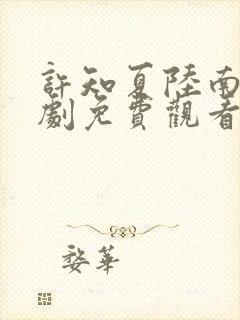 許知夏陸南
劇免費觀看
婺華